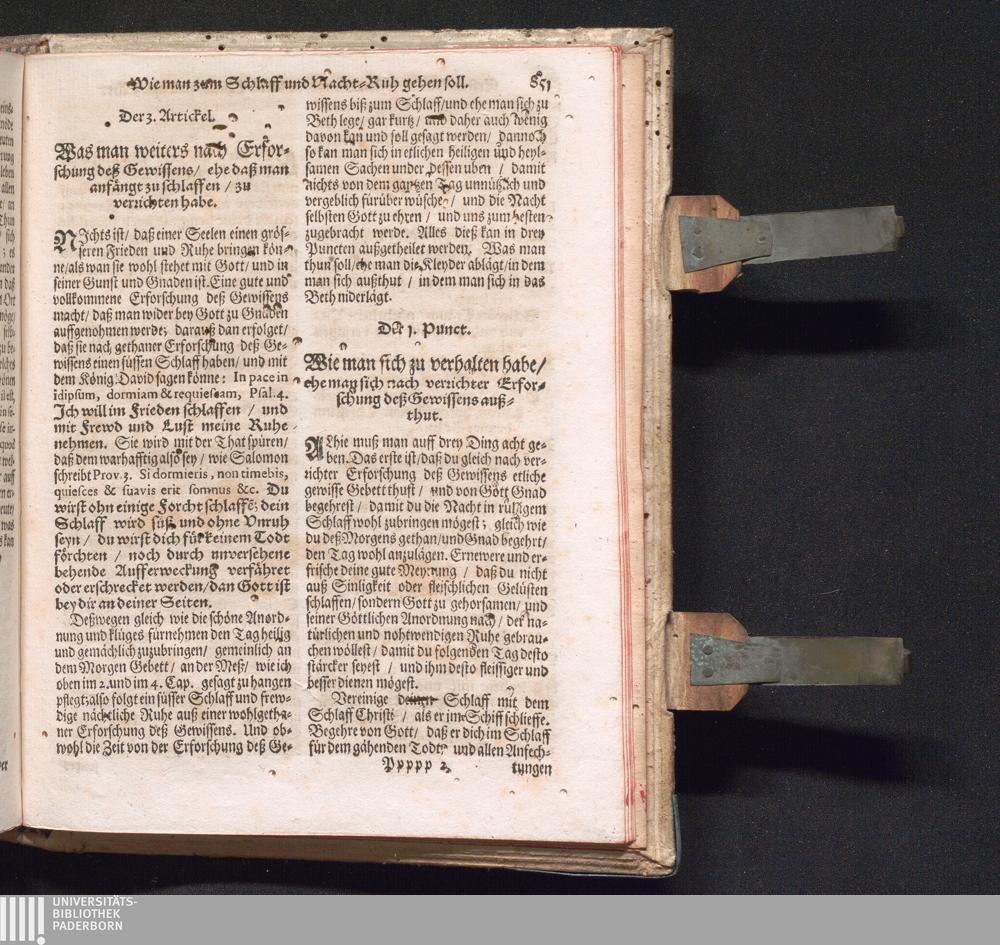 Wie man zum Schlaff und Nacht-Ruh gehen soll. 851
Der 3. Artickel.
Was man weiters nach Erfor-
schung deß Gewissens/ ehe daß man
anfängt zu schlaffen / zu
verrichten habe.
NIchts ist/ daß einer Seelen einen grös-
seren Frieden und Ruhe bringen kön-
ne/als wan sie wohl stehet mit Gott/ und in
seiner Gunst und Gnaden ist. Eine gute und
vollkommene Erforschung deß Gewissens
macht/ daß man wider bey Gott zu Gnaden
auffgenohmen werde; darauß dan erfolget/
daß sie nach gethaner Erforschung deß Ge-
wissens einen süssen Schlaff haben/ und mit
dem König David sagen könne: In pace in
idipsum, dormiam & requiescam, Psal. 4.
Ich will im Frieden schlaffen / und
mit Frewd und Lust meine Ruhe
nehmen. Sie wird mit der That spüren/
daß dem warhafftig also sey / wie Salomon
schreibt Prov. 3. Si dormieris, non timebis,
quiesces & suavis erit somnus &c. Du
wirst ohn einige Forcht schlaffē; dein
Schlaff wird süß und ohne Unruh
seyn / du wirst dich für keinem Todt
förchten / noch durch unversehene
behende Aufferweckung verfähret
oder erschrecket werden/dan Gott ist
bey dir an deiner Seiten.
Deßwegen gleich wie die schöne Anord-
nung und klüges fürnehmen den Tag heilig
und gemächlich zuzubringen/ gemeinlich an
dem Morgen Gebett/ an der Meß/ wie ich
oben im 2. und im 4. Cap. gesagt zu hangen
pflegt; also folgt ein süsser Schlaff und frew-
dige nächtliche Ruhe auß einer wohlgetha-
ner Erforschung deß Gewissens. Und ob-
wohl die Zeit von der Erforschung deß Ge-
wissens biß zum Schlaff/und ehe man sich zu
Beth lege/ gar kurtz/ und daher auch wenig
davon kan und soll gesagt werden/ dannoch
so kan man sich in etlichen heiligen und heyl-
samen Sachen under dessen uben / damit
nichts von dem gantzen Tag unnützlich und
vergeblich fürüber wüsche/ und die Nacht
selbsten Gott zu ehren / und uns zum besten
zugebracht werde. Alles dieß kan in drey
Puncten außgetheilet werden. Was man
thun soll/ehe man die Kleyder ablägt/in dem
man sich außthut / in dem man sich in das
Beth niderlägt.
Der 1. Punct.
Wie man sich zu verhalten habe/
ehe man sich nach verrichter Erfor-
schung deß Gewissens auß-
thut.
ALhie muß man auff drey Ding acht ge-
ben. Das erste ist/daß du gleich nach ver-
richter Erforschung deß Gewissens etliche
gewisse Gebett thust / und von Gott Gnad
begehrest / damit du die Nacht in ruhigem
Schlaff wohl zubringen mögest; gleich wie
du deß Morgens gethan/und Gnad begehrt/
den Tag wohl anzulägen. Ernewere und er-
frische deine gute Meynung / daß du nicht
auß Sinligkeit oder fleischlichen Gelüsten
schlaffen/ sondern Gott zu gehorsamen/ und
seiner Göttlichen Anordnung nach/ der na-
türlichen und nohtwendigen Ruhe gebrau-
chen wöllest/ damit du folgenden Tag desto
stärcker seyest / und ihm desto fleissiger und
besser dienen mögest.
Vereinige deinen Schlaff mit dem
Schlaff Christi / als er im Schiff schlieffe.
Begehre von Gott/ daß er dich im Schlaff
für dem gähenden Todt/ und allen Anfech-
Ppppp 2 tungen
UNIVERSITÄTS-
BIBLIOTHEK
PADERBORN